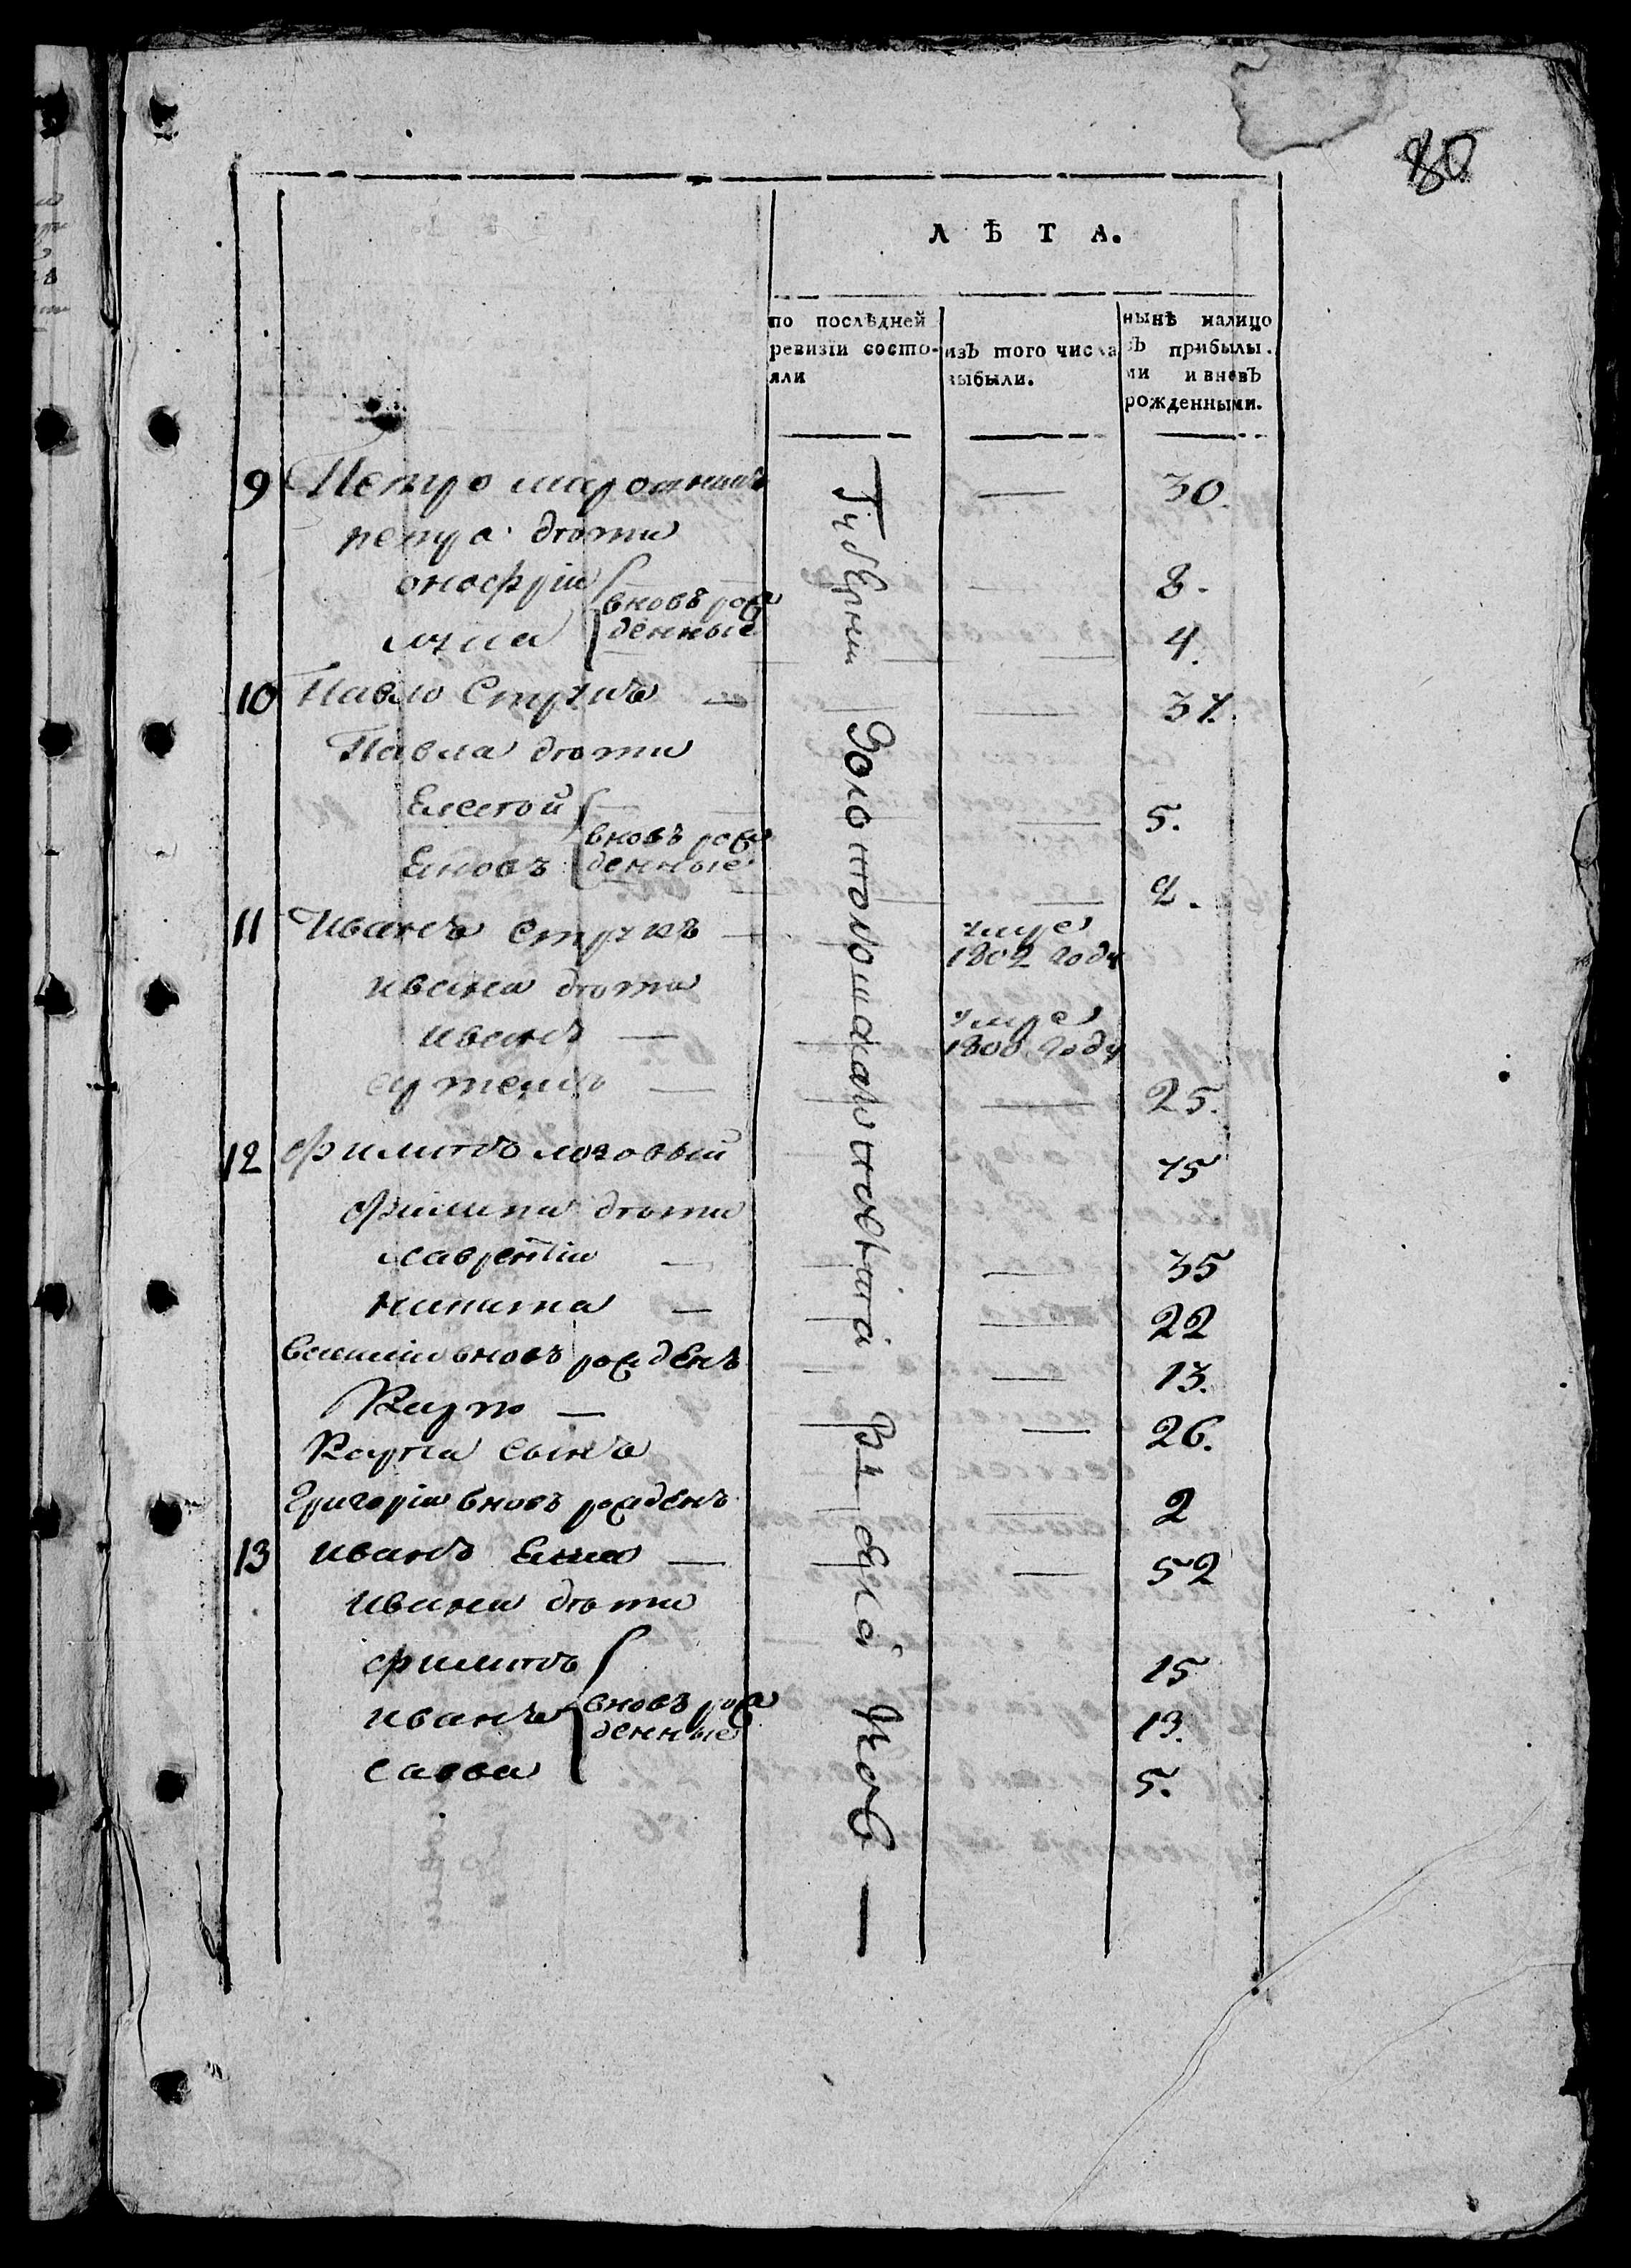 80
ЛѢТА.
по послѣдней ревизіи состояли
изъ того числа выбыли.
нынѣ налицо съ прибылыми и вневь рожденными.
9 Петро 30.
петра дѣти
онофрій 8.
вновь рожденные
лука 4.
10 Павло Стукъ 37.
Павла дѣти
Елесѣй 5.
вновь рожденные
Яковъ 2.
11 Иванъ Стукъ умре 1802 году
ивана дѣти
иванъ умре 1800 году
артемъ 25.
12 филипъ лозовый 75
филипа дѣти
лаврентій 35
никита 22
василій вновь рожденъ 13.
Карпо 26.
Карпа сынъ
григорій вновь рожденъ 2
13 иванъ 52
ивана дѣти
филипъ 15
иванъ вновь рожденные 13.
савва 5.
Губерніи Золотоношскаго